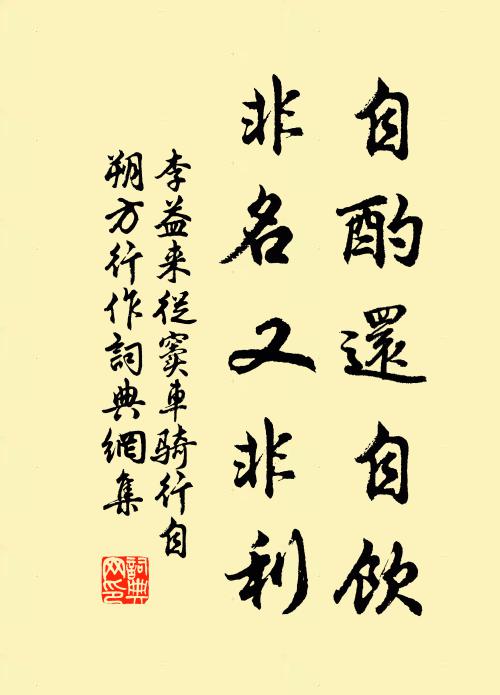 自酌還自飲
非名又非利
李益来從竇車騎行自
朔方行作詞典網集
詞典
网印